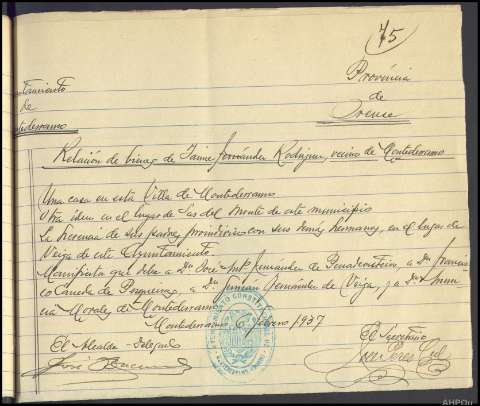 75
Provincia
de
Orense
Ayuntamiento
de
Montederramo
Relación de bienes de Jaime Fernández Rodríguez, vecino de Montederramo
Una casa en esta Villa de Montederramo
Otra idem en el lugar de Sas del Monte de este municipio
La herencia de sus padres proindiviso con sus demás hermanos, en el lugar de
Veiga de este Ayuntamiento.
Manifiesta que debe a Dn Jose Mª Fernández de a Dn Francis
co Caneda de a Dn Fernández de Veiga, y a Dn
Morales de Montederramo
Montederramo 6 Febrero 1937
El Alcalde Delegado
El Secretario
José
AHPOu